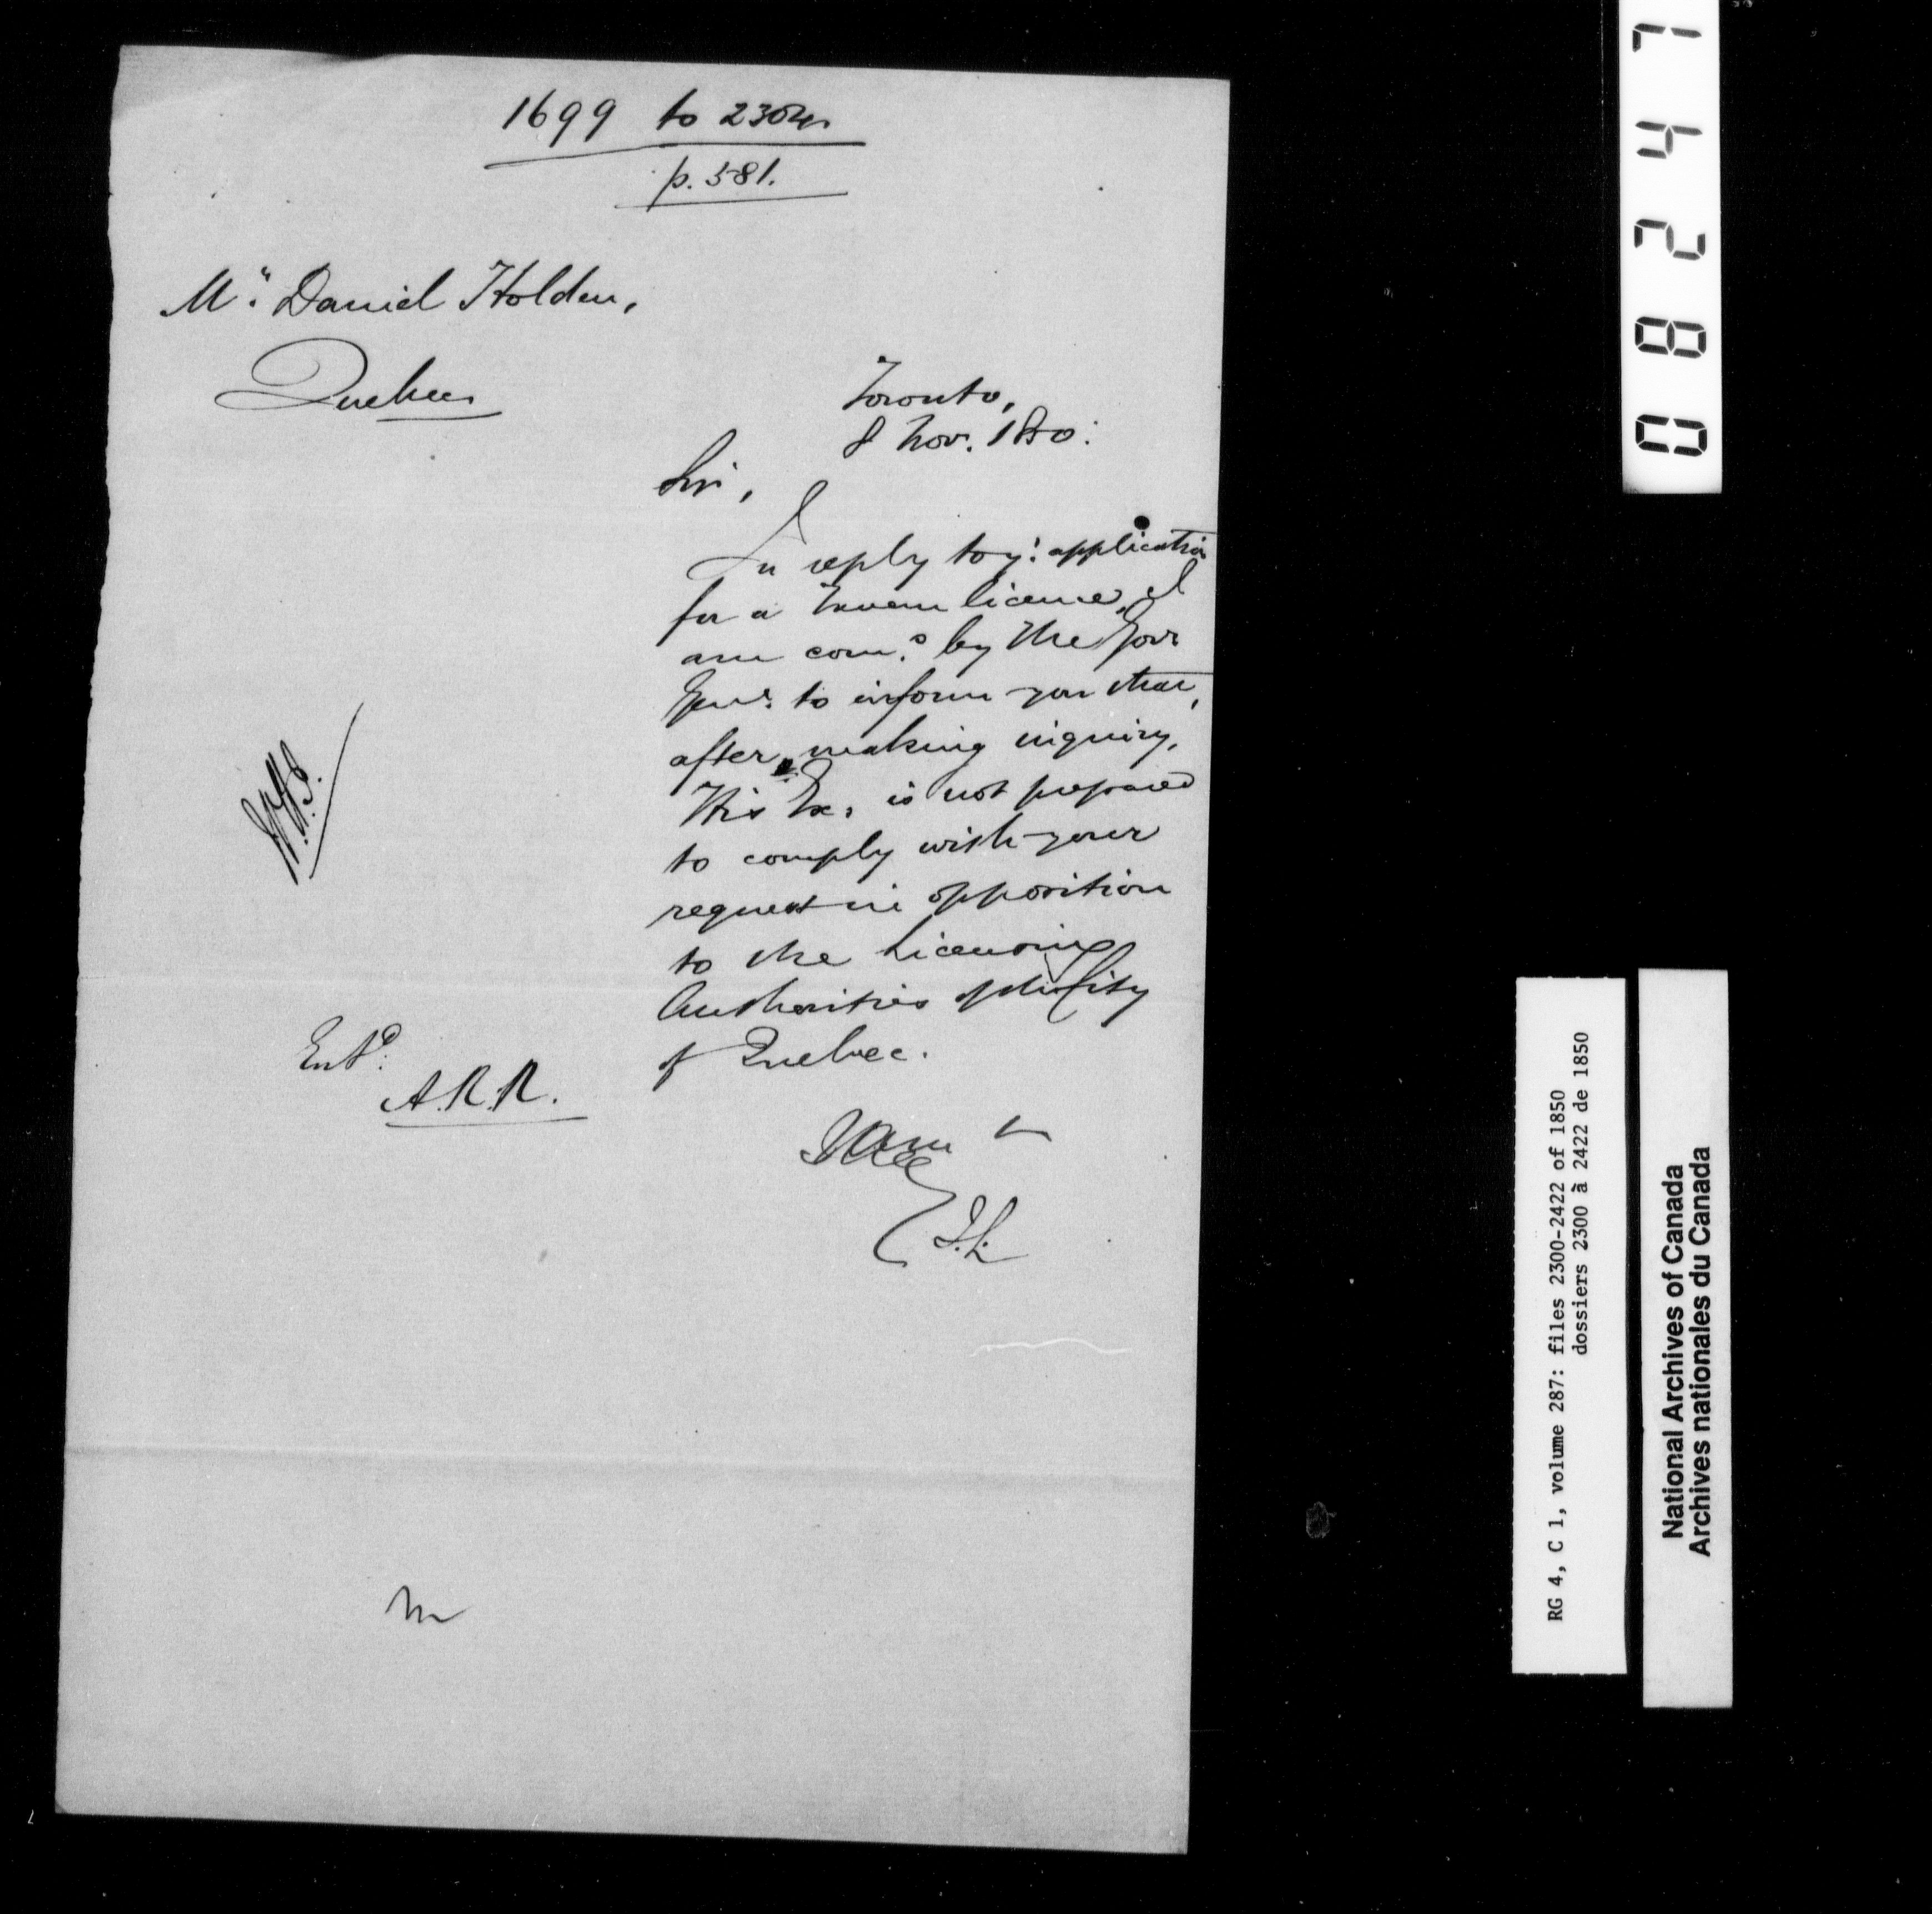 1699 to 2304
p. 581.
Mr. Daniel Holden,
Quebec
Toronto,
8 Nov. 1850.
Sir,
In reply to yr. application
for a Tavern licence, I
am com.d by the Govr
Genl. to inform you that,
after making inquiry,
His Ex. is not prepared
to comply with your
request in opposition
to the Licensing
Authorities of the City
of Quebec.
I am
J.L.
Entd.
A.R.R.
08247
RG 4, C 1, volume 287: files 2300-2422 of 1850
dossiers 2300 à 2422 de 1850
National Archives of Canada
Archives nationales du Canada